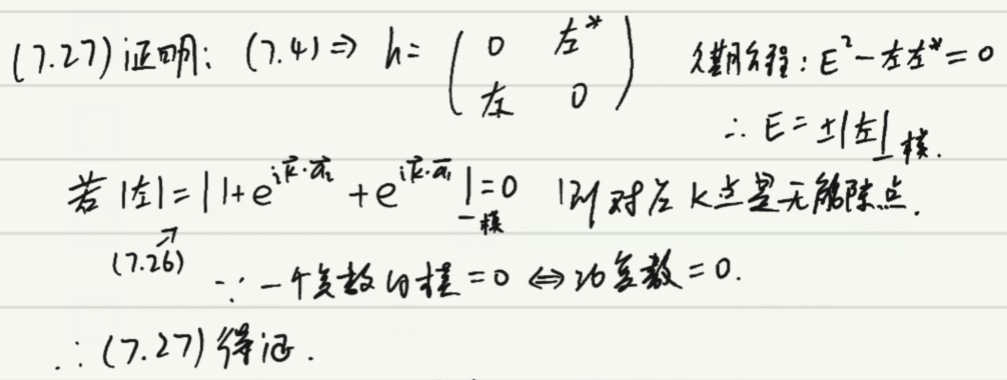 (7.27) 证明: (7.4) ⇒ h = ( 0 左* ; 左 0 ) 久期方程: E² - 左左* = 0
∴ E = ±|左| 模.
若 |左| = |1+e^{i\vec{k}·\vec{a_2}} + e^{i\vec{k}·\vec{a_1}}| = 0 则对应 k点是无能隙点.
(7.26) 模
∵ 一个复数的模 = 0 ⇔ 此复数 = 0.
∴ (7.27) 得证.